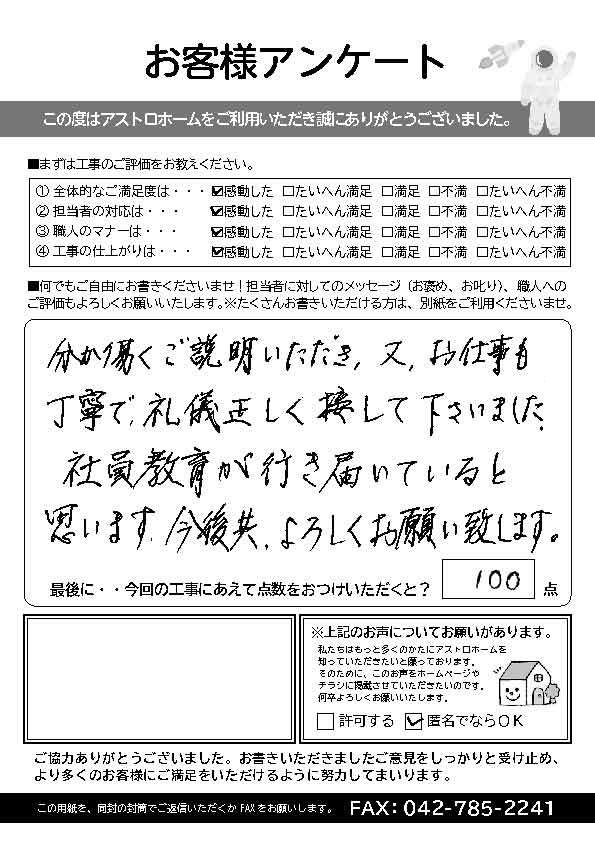 お客様アンケート
この度はアストロホームをご利用いただき誠にありがとうございました。
■まずは工事のご評価をお教えください。
①全体的なご満足度は・・・ ☑感動した □たいへん満足 □満足 □不満 □たいへん不満
②担当者の対応は・・・ ☑感動した □たいへん満足 □満足 □不満 □たいへん不満
③職人のマナーは・・・ ☑感動した □たいへん満足 □満足 □不満 □たいへん不満
④工事の仕上がりは・・・ ☑感動した □たいへん満足 □満足 □不満 □たいへん不満
■何でもご自由にお書きくださいませ！担当者に対してのメッセージ（お褒め、お叱り）、職人への
ご評価もよろしくお願いいたします。※たくさんお書きいただける方は、別紙をご利用くださいませ。
分か易くご説明いただき、又、お仕事も
丁寧で、礼儀正しく接して下さいました
社員教育が行き届いていると
思います。今後共、よろしくお願い致します。
最後に・・今回の工事にあえて点数をおつけいただくと？ 100 点
※上記のお声についてお願いがあります。
私たちはもっと多くのかたにアストロホームを
知っていただきたいと願っております。
そのために、このお声をホームページや
チラシに掲載させていただきたいのです。
何卒よろしくお願いいたします。
□許可する ☑匿名でならＯＫ
ご協力ありがとうございました。お書きいただきましたご意見をしっかりと受け止め、
より多くのお客様にご満足をいただけるように努力してまいります。
この用紙を、同封の封筒でご返信いただくかFAXをお願いします。 FAX：042-785-2241